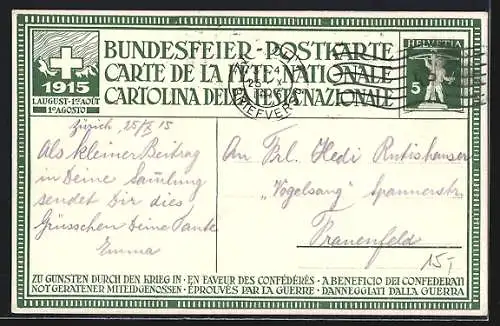 BUNDESFEIER-POSTKARTE
CARTE DE LA FÊTE NATIONALE
CARTOLINA DELLA FESTA NAZIONALE
1915
1. AUGUST · 1ER AOÛT
1O AGOSTO
HELVETIA
5
BRIEFVERS
Zürich 25/X 15
Als kleiner Beitrag
in Deine Samlung
sendet Dir dies
Grüsschen Deine Tante
Emma
An Frl. Hedi Rutishauser
"Vogelsang" Spannerstr.
Frauenfeld
15,-
ZU GUNSTEN DURCH DEN KRIEG IN · EN FAVEUR DES CONFÉDÉRÉS · A BENEFICIO DEI CONFEDERATI
NOT GERATENER MITEIDGENOSSEN · ÉPROUVÉS PAR LA GUERRE · DANNEGGIATI DALLA GUERRA